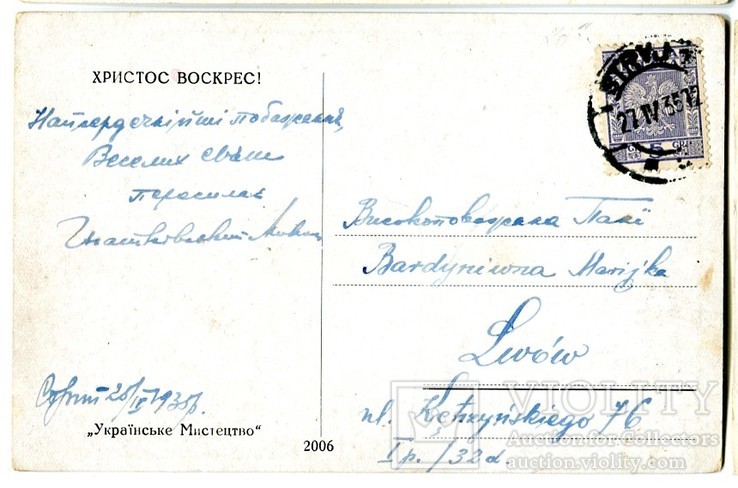 ХРИСТОС ВОСКРЕС!
Найсердечнійші побажання,
Веселих свят
пересилає
STRYJ
27 IV 35 12
5 GR
Високоповажана Пані
Bardyniwna Marijka
Lwów
ul. Kętrzyńskiego 76
I p. /32 d.
Стрий 26/IV 1935р.
„Українське Мистецтво"
2006
VIOLITY
Auction for collectors
auction.violity.com